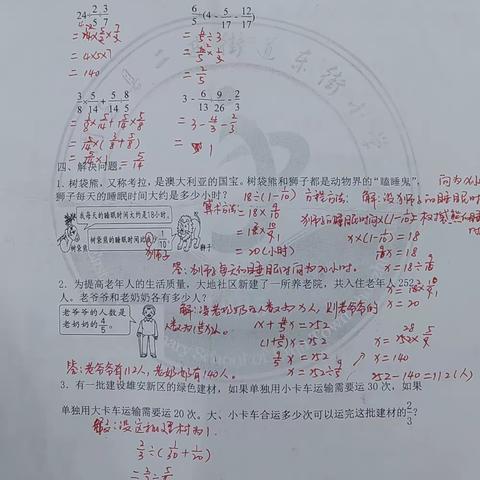 24÷2/5÷3/7
=24×5/2×7/3
=4×5×7
=140
6/5÷(4-5/17-12/17)
=6/5÷3
=6/5×1/3
=2/5
3/8×5/14+5/14÷8/5
=3/8×5/14+5/14×5/8
=5/14×(3/8+5/8)
=5/14×1=5/14
3-6/13÷9/26-2/3
=3-4/3-2/3
=1
四、解决问题。
1. 树袋熊，又称考拉，是澳大利亚的国宝。树袋熊和狮子都是动物界的“瞌睡鬼”，
狮子每天的睡眠时间大约是多少小时？
我每天的睡眠时间大约是18小时。
树袋熊的睡眠时间比我少1/10。
树袋熊
狮子
算术方法：18÷(1-1/10)
=18÷9/10
=18×10/9
=20(小时)
方程方法：解：设狮子的睡眠时
x×(1-1/10)=18
9/10x=18
x=18÷9/10
x=18×10/9
x=20
答：狮子每天的睡眠时间为20小时。
2. 为提高老年人的生活质量，大地社区新建了一所养老院，共入住老年人252
人。老爷爷和老奶奶各有多少人？
老爷爷的人数是
老奶奶的4/5。
解：设老奶奶的人数为x人，则老爷爷的
人数为4/5x人。
x+4/5x=252
(1+4/5)x=252
9/5x=252
x=252÷9/5
x=252×5/9
x=140
252-140=112(人)
答：老爷爷有112人，老奶奶有140人。
3. 有一批建设雄安新区的绿色建材，如果单独用小卡车运输需要运30次，如果
单独用大卡车运输需要运20次。大、小卡车合运多少次可以运完这批建材的2/3？
解：设这批建材为1.
2/3÷(1/30+1/20)